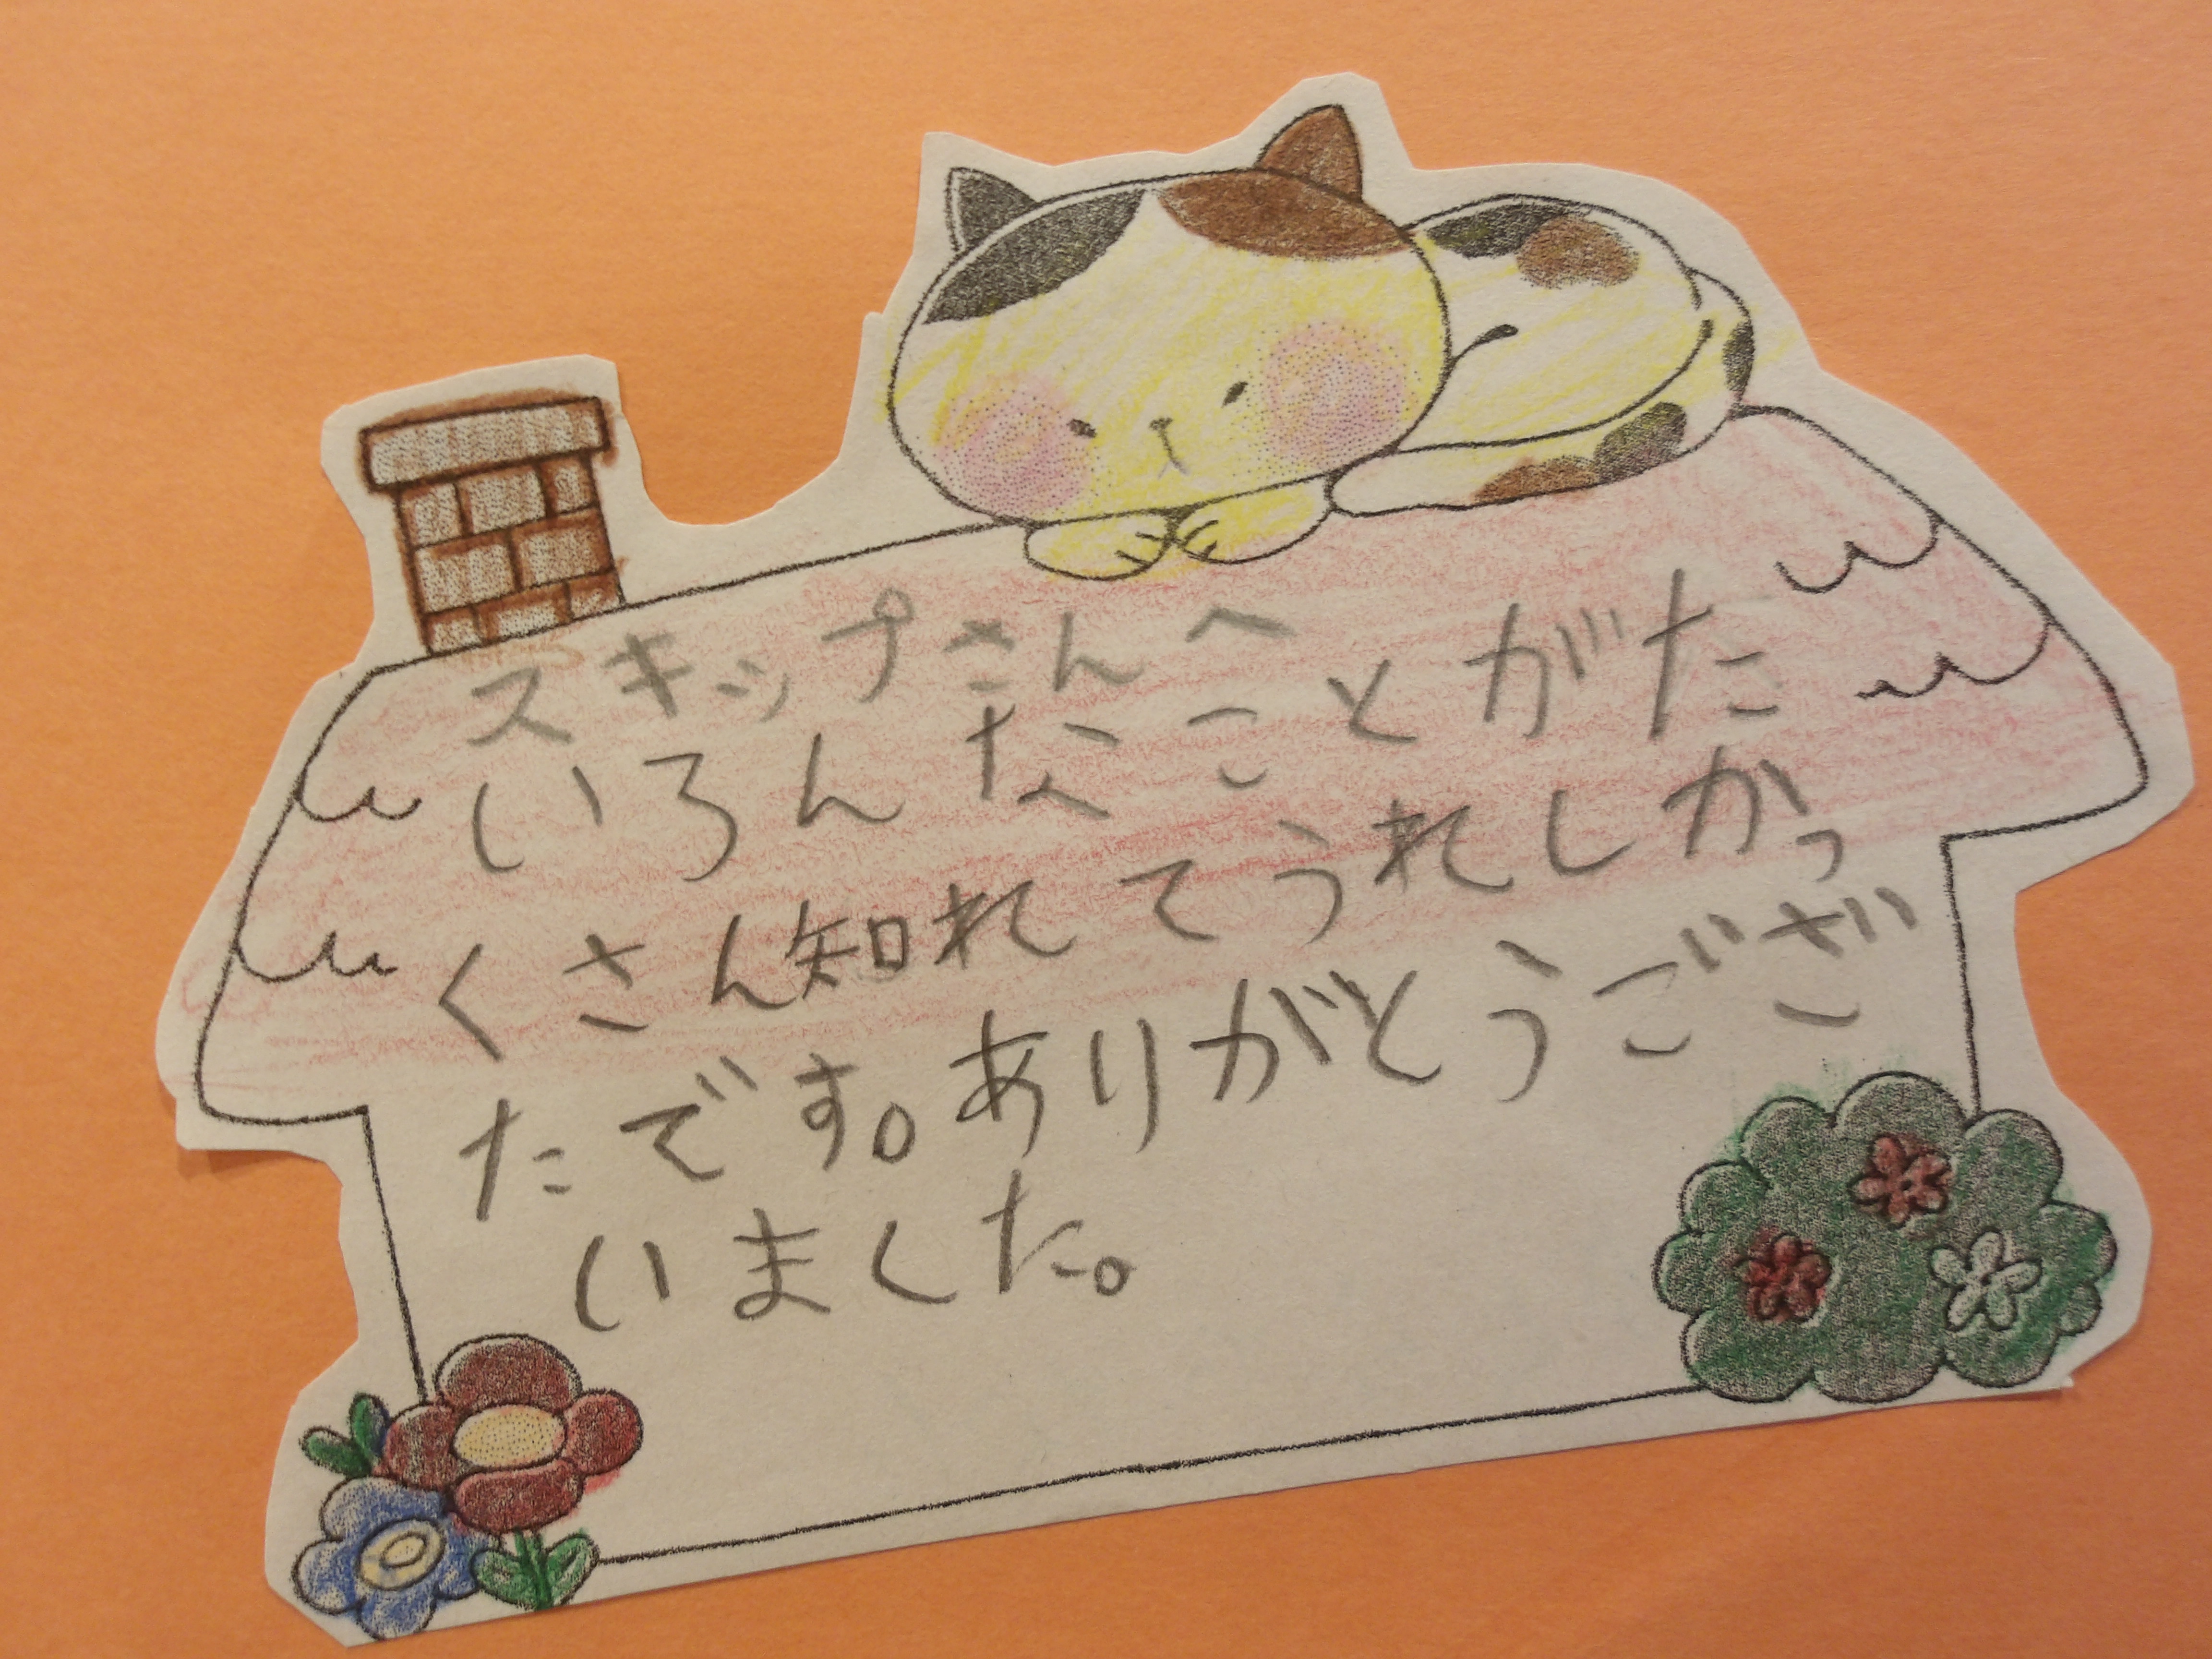 スキップさんへ
いろんなことがた
くさん知れてうれしかっ
たです。ありがとうござ
いました。